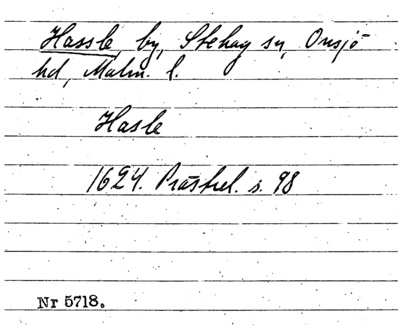 Hassle, by, Stehag sn, Onsjö
hd, Malm. l.
Hasle
1624. Prästrel. s. 98
Nr 5718.